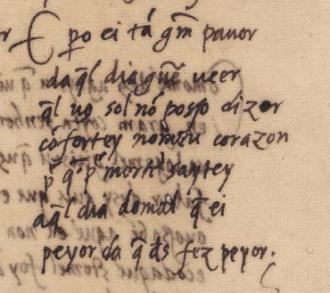 E pero ei tá gram pauor
da q̃l dia guẽ ueer
q̃l uo sol nõ posso dizer
cõfortey nomeu corazon
p̃ q̃ p̃ morte saytey
aq̃l dia domal q̃ ei
peyor da q̃ ds̃ fez peyor.